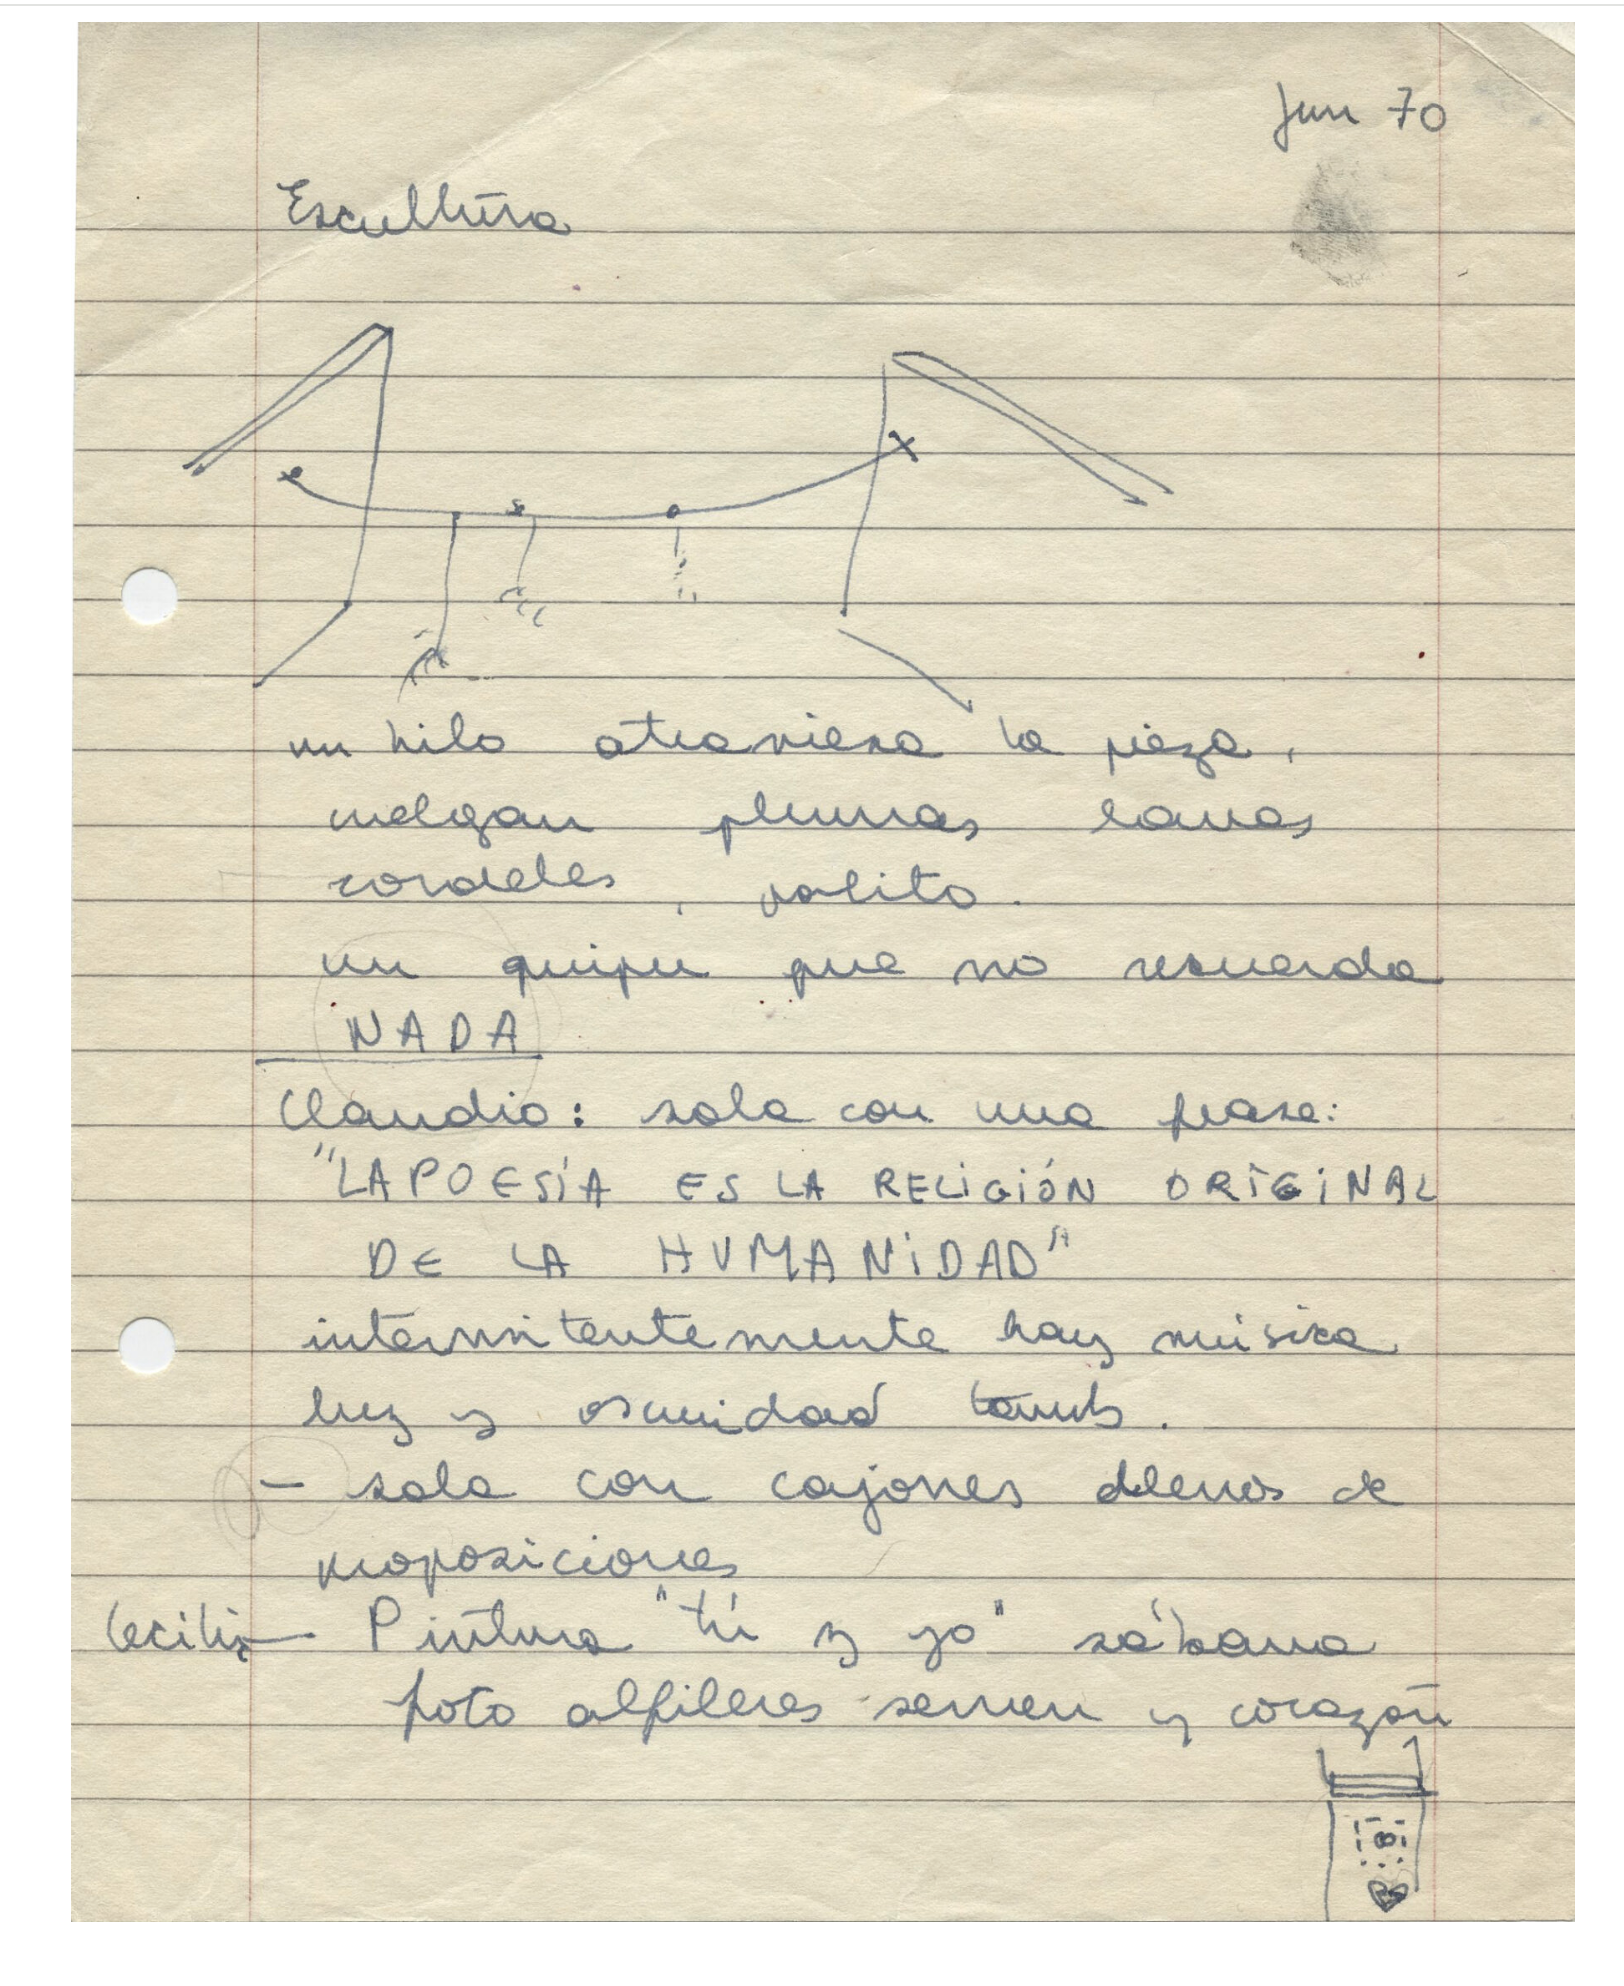 Jun 70
Escultura
un hilo atraviesa la pieza,
cuelgan plumas lanas
cordeles, palito.
un quipu que no recuerda
NADA
Claudio: sala con una frase:
"LA POESÍA ES LA RELIGIÓN ORIGINAL
DE LA HUMANIDAD"
intermitentemente hay música
luz y oscuridad tamb.
- sala con cajones llenos de
proposiciones
Cecilia - Pintura "tú y yo" sábana
foto alfileres semen y corazón